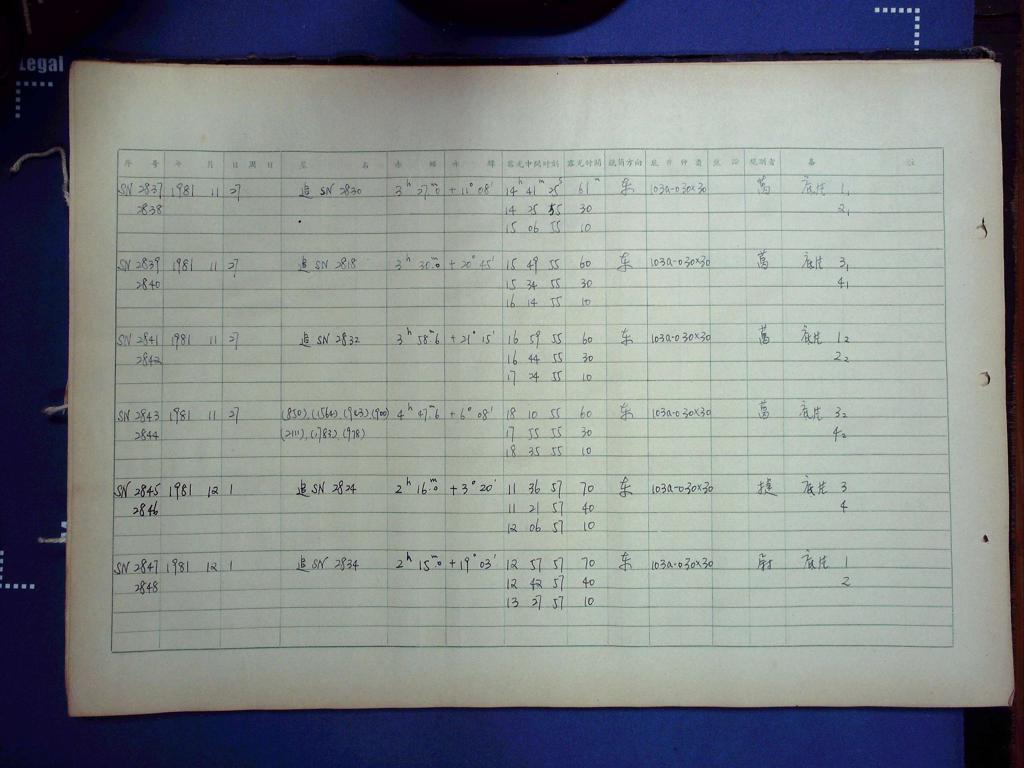 Legal
序 号 年 月 日 周 日 星 名 赤 经 赤 纬 露光中间时刻 露光时间 镜筒方向 底片种类 观测者 备 注
SN 2837 1981 11 27 追 SN 2830 3ʰ 27ᵐ.0 +11° 08′ 14ʰ 41ᵐ 25ˢ 61ᵐ 东 103a-0 30×30 万 底片 1₁
2838 14 25 55 30 2₁
15 06 55 10
SN 2839 1981 11 27 追 SN 2818 3ʰ 30ᵐ.0 +20° 45′ 15 49 55 60 东 103a-0 30×30 底片 3₁
2840 15 34 55 30 4₁
16 14 55 10
SN 2841 1981 11 27 追 SN 2832 3ʰ 58ᵐ.6 +21° 15′ 16 59 55 60 东 103a-0 30×30 底片 1₂
2842 16 44 55 30 2₂
17 24 55 10
SN 2843 1981 11 27 (850), (1564), (943) (900) 4ʰ 47ᵐ.6 +6° 08′ 18 10 55 60 东 103a-0 30×30 底片 3₂
2844 (2111), (1783), (978) 17 55 55 30 4₂
18 35 55 10
SN 2845 1981 12 1 追 SN 2824 2ʰ 16ᵐ.0 +3° 20′ 11 36 57 70 东 103a-0 30×30 底片 3
2846 11 21 57 40 4
12 06 57 10
SN 2847 1981 12 1 追 SN 2834 2ʰ 15ᵐ.0 +19° 03′ 12 57 57 70 东 103a-0 30×30 底片 1
2848 12 42 57 40 2
13 27 57 10